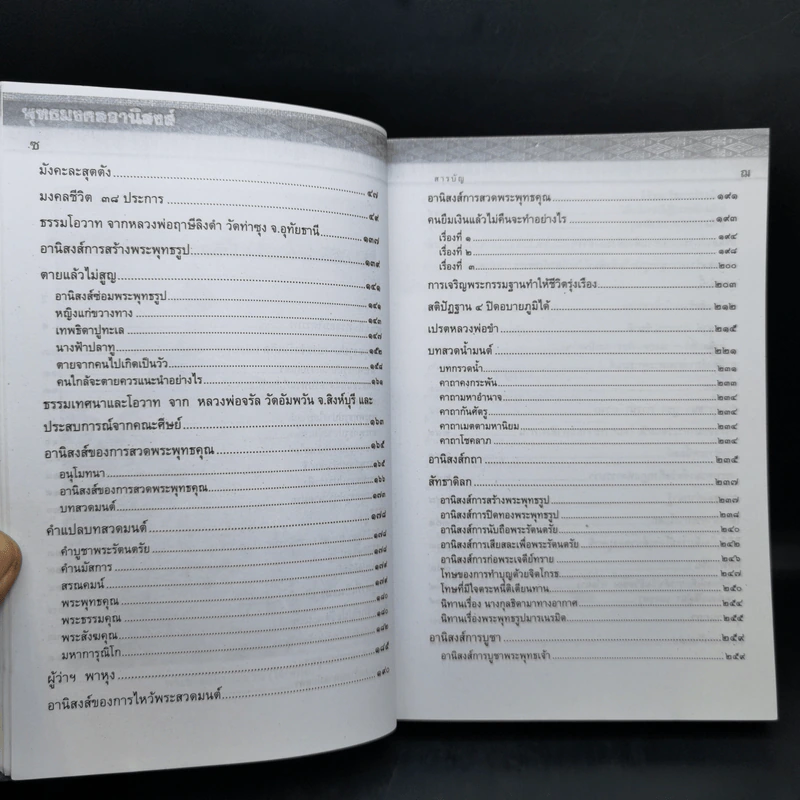 พุทธมงคลอานิสงส์
ซ
มังคะละสุตตัง ๔๗
มงคลชีวิต ๓๘ ประการ ๔๙
ธรรมโอวาท จากหลวงพ่อฤาษีลิงดำ วัดท่าซุง จ.อุทัยธานี ๑๓๗
อานิสงส์การสร้างพระพุทธรูป ๑๓๙
ตายแล้วไม่สูญ ๑๔๑
อานิสงส์ซ่อมพระพุทธรูป ๑๔๑
หญิงแก่ขวางทาง ๑๔๓
เทพธิดาปูทะเล ๑๔๗
นางฟ้าปลาทู ๑๕๒
ตายจากคนไปเกิดเป็นวัว ๑๕๘
คนใกล้จะตายควรแนะนำอย่างไร ๑๖๑
ธรรมเทศนาและโอวาท จาก หลวงพ่อจรัล วัดอัมพวัน จ.สิงห์บุรี และ
ประสบการณ์จากคณะศิษย์ ๑๖๓
อานิสงส์ของการสวดพระพุทธคุณ ๑๖๕
อนุโมทนา ๑๖๕
อานิสงส์ของการสวดพระพุทธคุณ ๑๖๖
บทสวดมนต์ ๑๗๓
คำแปลบทสวดมนต์ ๑๗๘
คำบูชาพระรัตนตรัย ๑๗๘
คำนมัสการ ๑๗๘
สรณคมน์ ๑๗๙
พระพุทธคุณ ๑๘๐
พระธรรมคุณ ๑๘๑
พระสังฆคุณ ๑๘๒
มหาการุณิโก ๑๘๕
ผู้ว่าฯ พาหุง ๑๙๐
อานิสงส์ของการไหว้พระสวดมนต์
สารบัญ
ฌ
อานิสงส์การสวดพระพุทธคุณ ๑๙๑
คนยืมเงินแล้วไม่คืนจะทำอย่างไร ๑๙๓
เรื่องที่ ๑ ๑๙๔
เรื่องที่ ๒ ๑๙๘
เรื่องที่ ๓ ๒๐๐
การเจริญพระกรรมฐานทำให้ชีวิตรุ่งเรือง ๒๐๓
สติปัฏฐาน ๔ ปิดอบายภูมิได้ ๒๑๒
เปรตหลวงพ่อขำ ๒๑๕
บทสวดน้ำมนต์ ๒๒๑
บทกรวดน้ำ ๒๓๑
คาถาคงกระพัน ๒๓๓
คาถามหาอำนาจ ๒๓๔
คาถากันศัตรู ๒๓๔
คาถาเมตตามหานิยม ๒๓๔
คาถาโชคลาภ ๒๓๔
อานิสงส์กถา ๒๓๕
สัทธาดิลก ๒๓๗
อานิสงส์การสร้างพระพุทธรูป ๒๓๗
อานิสงส์การปิดทองพระพุทธรูป ๒๓๘
อานิสงส์การนับถือพระรัตนตรัย ๒๔๐
อานิสงส์การเสียสละเพื่อพระรัตนตรัย ๒๔๒
อานิสงส์การก่อพระเจดีย์ทราย ๒๔๖
โทษของการทำบุญด้วยจิตโกรธ ๒๔๗
โทษที่มีใจตระหนี่ติเตียนทาน ๒๕๐
นิทานเรื่อง นางกุลธิดามาทางอากาศ ๒๕๔
นิทานเรื่องพระพุทธรูปมารเนรมิต ๒๕๗
อานิสงส์การบูชา ๒๕๙
อานิสงส์การบูชาพระพุทธเจ้า ๒๕๙